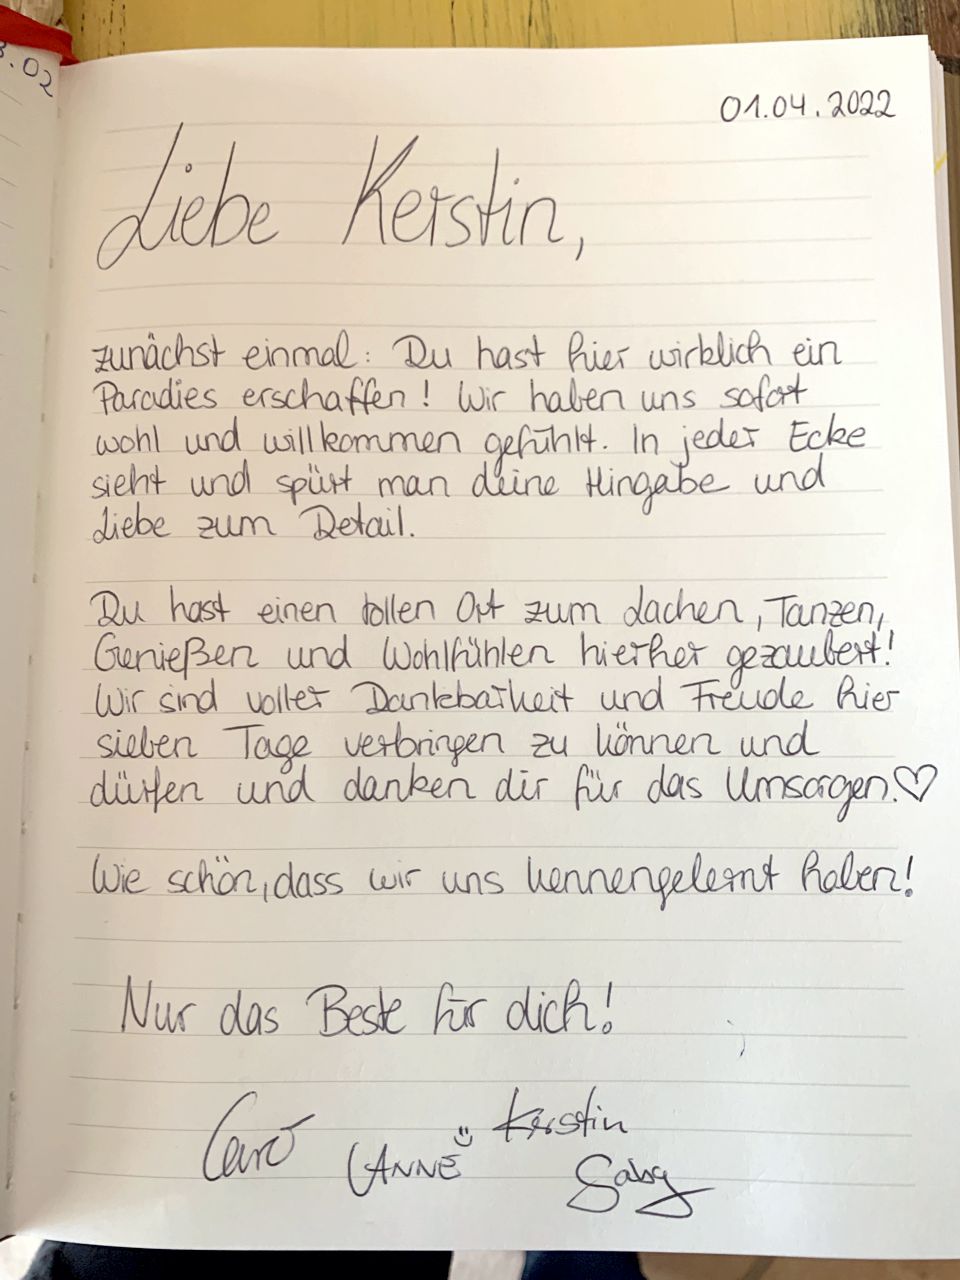 3.02
01.04.2022
Liebe Kerstin,
zunächst einmal: Du hast hier wirklich ein
Paradies erschaffen! Wir haben uns sofort
wohl und willkommen gefühlt. In jeder Ecke
sieht und spürt man deine Hingabe und
Liebe zum Detail.
Du hast einen tollen Ort zum Lachen, Tanzen,
Genießen und Wohlfühlen hierher gezaubert!
Wir sind voller Dankbarkeit und Freude hier
sieben Tage verbringen zu können und
dürfen und danken dir für das Umsorgen.♡
Wie schön, dass wir uns kennengelernt haben!
Nur das Beste für dich!
Caro
ANNE
Kerstin
Gaby